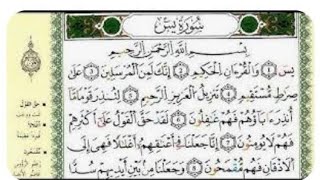 سُورَةُ يسٓ
بِسْمِ ٱللَّهِ ٱلرَّحْمَٰنِ ٱلرَّحِيمِ
يسٓ ١ وَٱلْقُرْءَانِ ٱلْحَكِيمِ ٢ إِنَّكَ لَمِنَ ٱلْمُرْسَلِينَ ٣ عَلَىٰ
صِرَٰطٍ مُّسْتَقِيمٍ ٤ تَنزِيلَ ٱلْعَزِيزِ ٱلرَّحِيمِ ٥ لِتُنذِرَ قَوْمًا مَّآ
أُنذِرَ ءَابَآؤُهُمْ فَهُمْ غَٰفِلُونَ ٦ لَقَدْ حَقَّ ٱلْقَوْلُ عَلَىٰٓ أَكْثَرِهِمْ
فَهُمْ لَا يُؤْمِنُونَ ٧ إِنَّا جَعَلْنَا فِىٓ أَعْنَٰقِهِمْ أَغْلَٰلًا فَهِىَ إِلَى
ٱلْأَذْقَانِ فَهُم مُّقْمَحُونَ ٨ وَجَعَلْنَا مِنۢ بَيْنِ أَيْدِيهِمْ سَدًّا
حَقَّ القَوْلُ
مُقْمَحُونَ